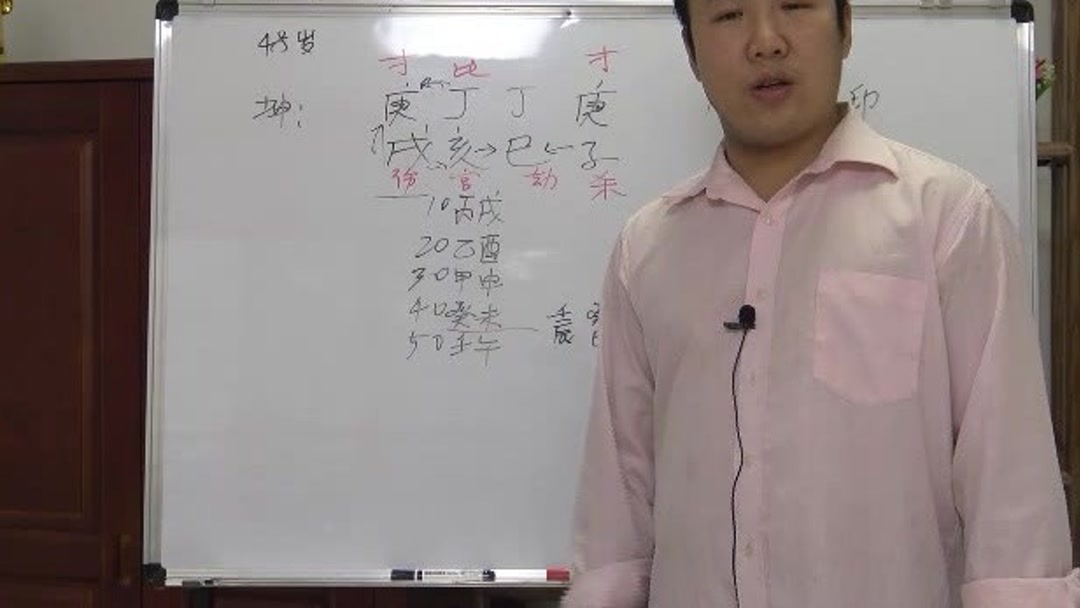 岁
才 比 才
坤: 庚 丁 丁 庚
戌 亥→巳←子
伤 官 劫 杀
10 丙戌
20 乙酉
30 甲申
40 癸未 壬辰
50 壬午
印